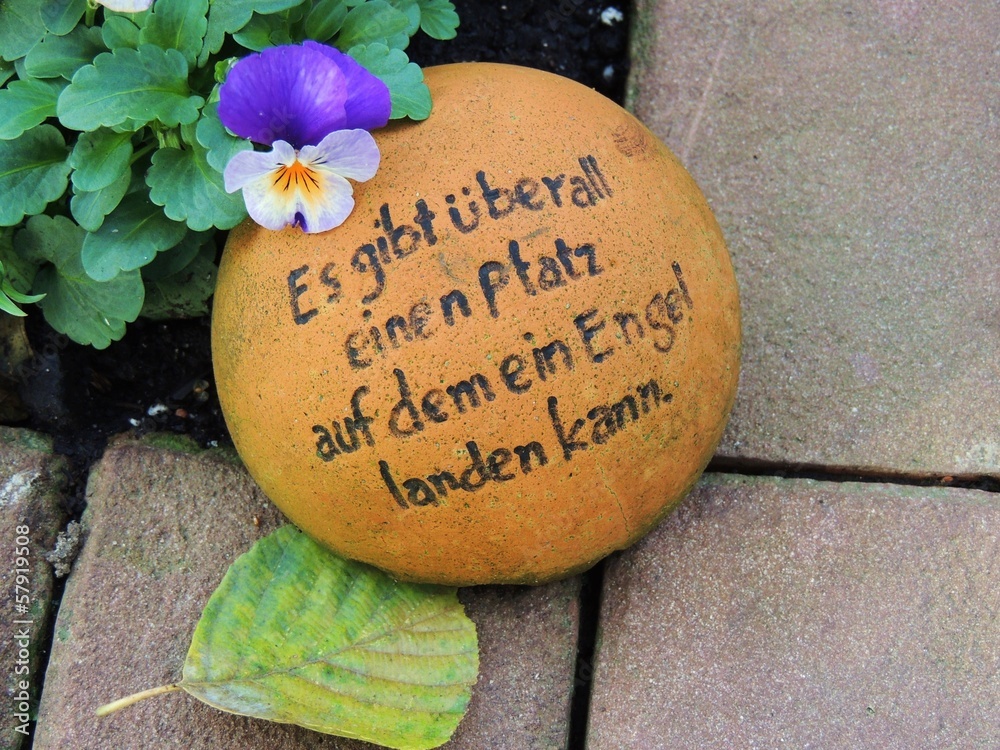 Es gibt überall
einen Platz
auf dem ein Engel
landen kann.
Adobe Stock | #57919508